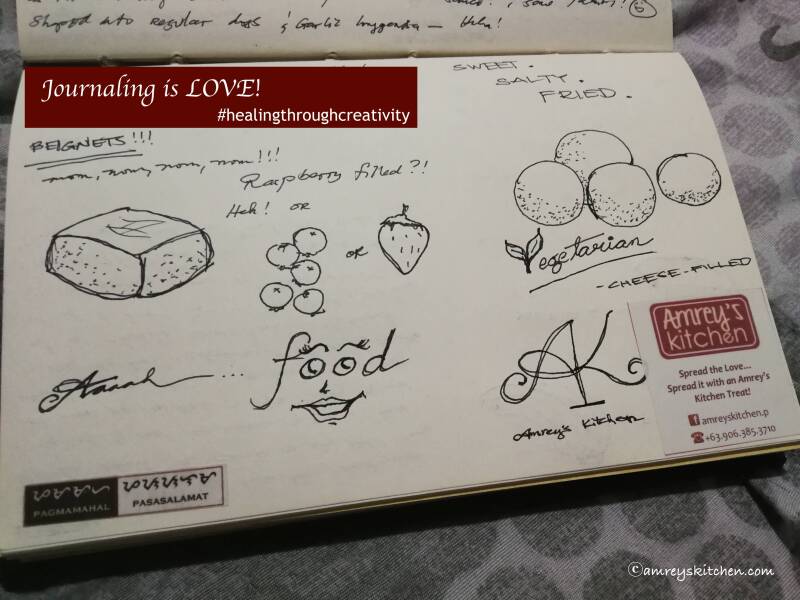 Shaped into regular dogs & Garlic longganisa — Heh!
Journaling is LOVE!
#healingthroughcreativity
SWEET.
SALTY.
FRIED.
BEIGNETS!!!
nom, nom, nom, nom!!!
Raspberry filled?!
Heh! or
or
Vegetarian
- CHEESE-FILLED
Aaaah ... food
AK
Amrey's Kitchen
Amrey's
kitchen
Spread the Love...
Spread it with an Amrey's
Kitchen Treat!
amreyskitchen.p
+63.906.385.3710
PAGMAMAHAL
PASASALAMAT
©amreyskitchen.com